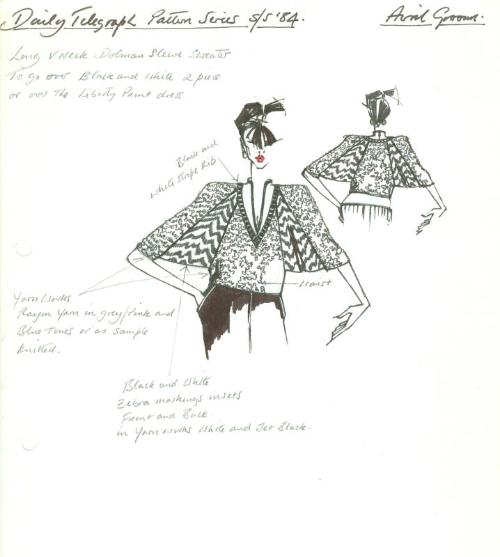 Daily Telegraph Pattern Series S/S '84.
Avril Groom.
Long V Neck Dolman Sleeve Sweater
To go over Black and White 2 piece
or over The Liberty Print dress
Black and
White Stripe Rib
Waist
Yarnworks
Rayon Yarn in grey/Pink and
Blue Tones or as sample
Knitted.
Black and White
Zebra markings insets
Front and Back.
in Yarnworks White and Jet Black.